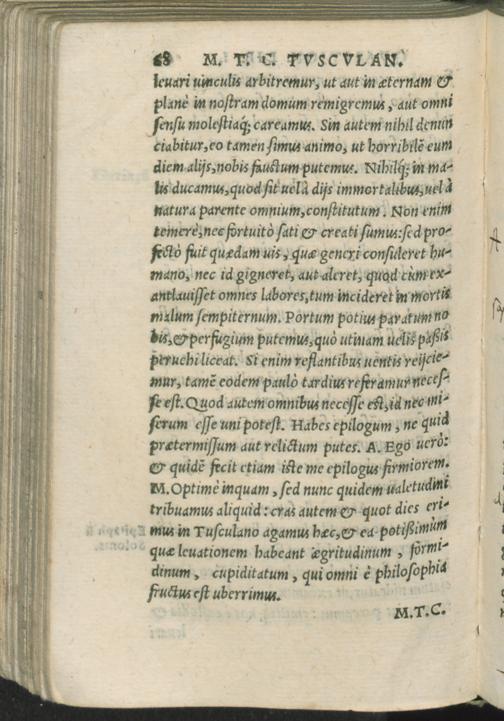 68 M. T. C. TVSCVLAN.
leuari uinculis arbitremur, ut aut in æternam &
planè in nostram domum remigremus, aut omni
sensu molestiaq; careamus. Sin autem nihil denun
ciabitur, eo tamen simus animo, ut horribilē eum
diem alijs, nobis faustum putemus. Nihilq́; in ma-
lis ducamus, quod sit uel à dijs immortalibus, uel à
natura parente omnium, constitutum. Non enim
temerè, nec fortuitò sati & creati sumus: sed pro-
fectò fuit quædam uis, quæ generi consuleret hu-
mano, nec id gigneret, aut aleret, quod cùm ex-
antlauisset omnes labores, tum incideret in mortis
malum sempiternum. Portum potius paratum no
bis, & perfugium putemus, quò utinam uelis passis
peruehi liceat. Si enim reflantibus uentis reijcie-
mur, tamē eodem paulò tardius referamur neces-
se est. Quod autem omnibus necesse est, id nec mi-
serum esse uni potest. Habes epilogum, ne quid
prætermissum aut relictum putes. A. Ego uerò:
& quidē fecit etiam iste me epilogus firmiorem.
M. Optimè inquam, sed nunc quidem ualetudini
tribuamus aliquid: cras autem & quot dies eri-
mus in Tusculano agamus hæc, & ea potißimum
quæ leuationem habeant ægritudinum, formi-
dinum, cupiditatum, qui omni è philosophia
fructus est uberrimus.
M.T.C.